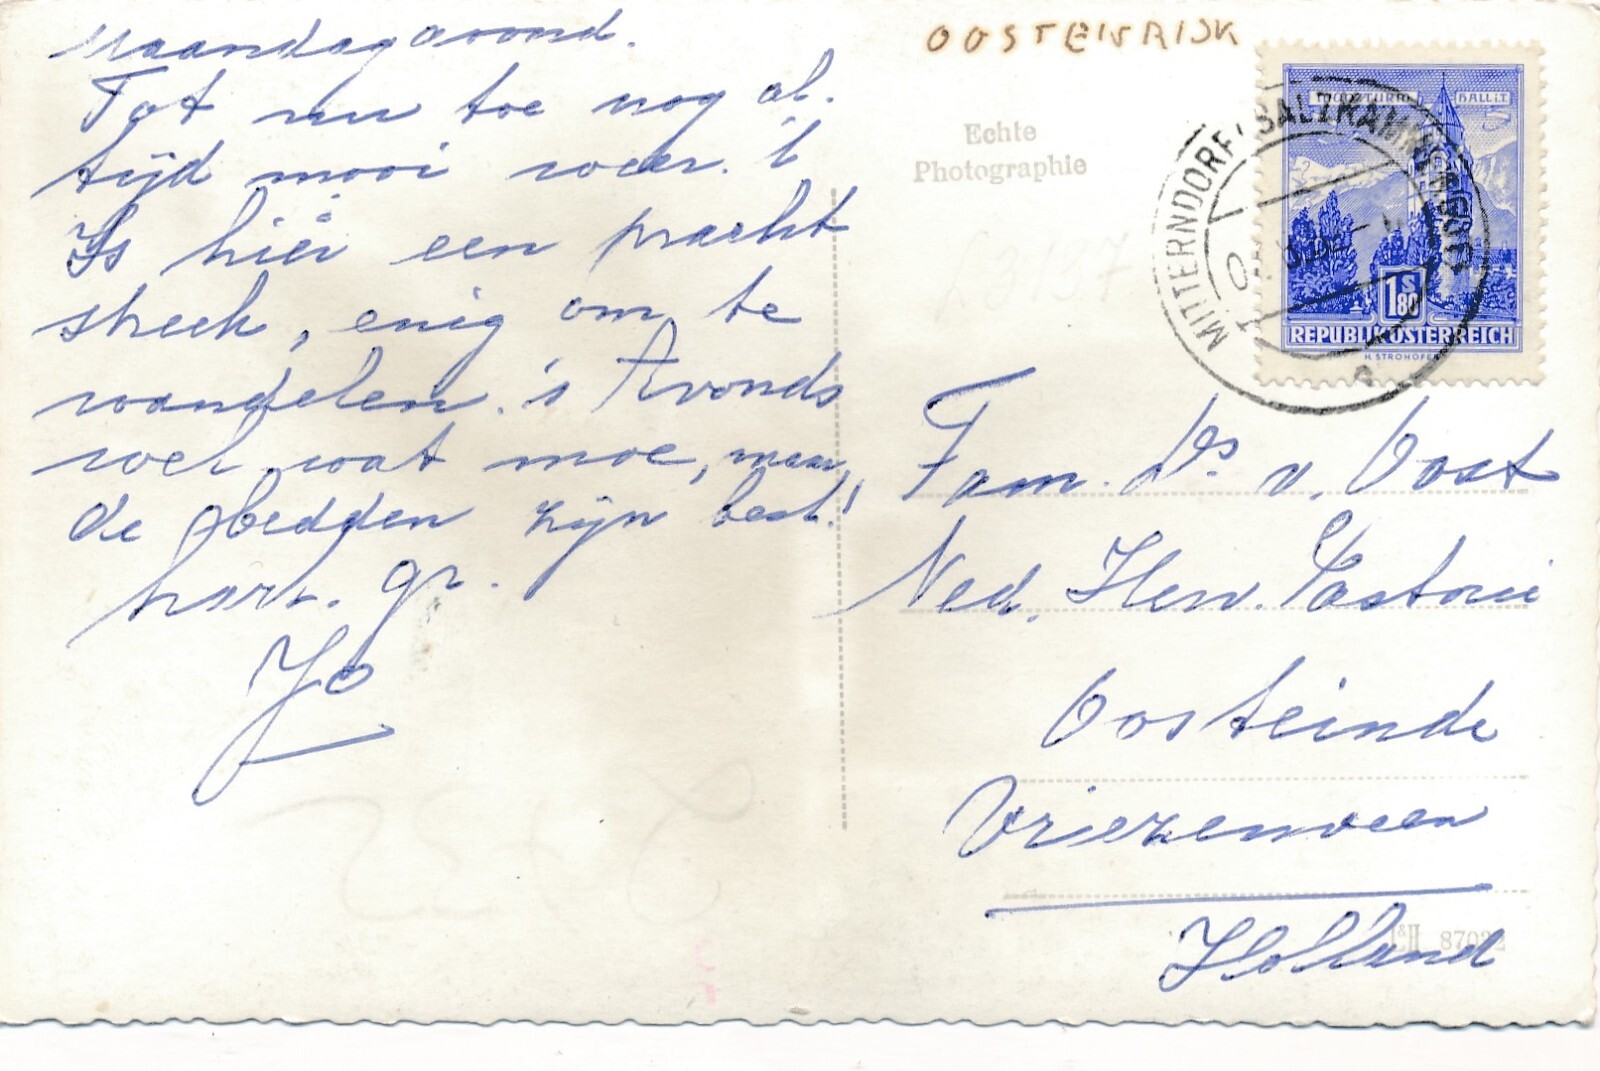 Maandagavond.
Tot nu toe nog al.
tijd mooi weer. 't
Is hier een pracht
streek, enig om te
wandelen. 's Avonds
wel wat moe, maar
de bedden zijn best!
hart. gr.
Jo
OOSTENRIJK
Echte
Photographie
MÜNZTURM HALL i.T.
1S
80
REPUBLIK ÖSTERREICH
H. STROHOFER
MITTERNDORF, SALZKAMMERGUT
Fam. Ds. v. Oost
Ned. Herv. Pastorie
Oosteinde
Vriezenveen
Holland
87032